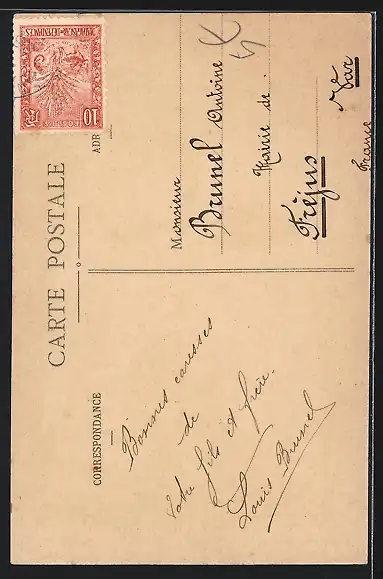 CARTE POSTALE
CORRESPONDANCE
Bonnes caresses
de
votre fils et frère.
Louis Brunel
ADR
MADAGASCAR ET DÉPENDANCES
POSTES
10
Monsieur
Brunel Antoine
Mairie de.
Fréjus
Var
France